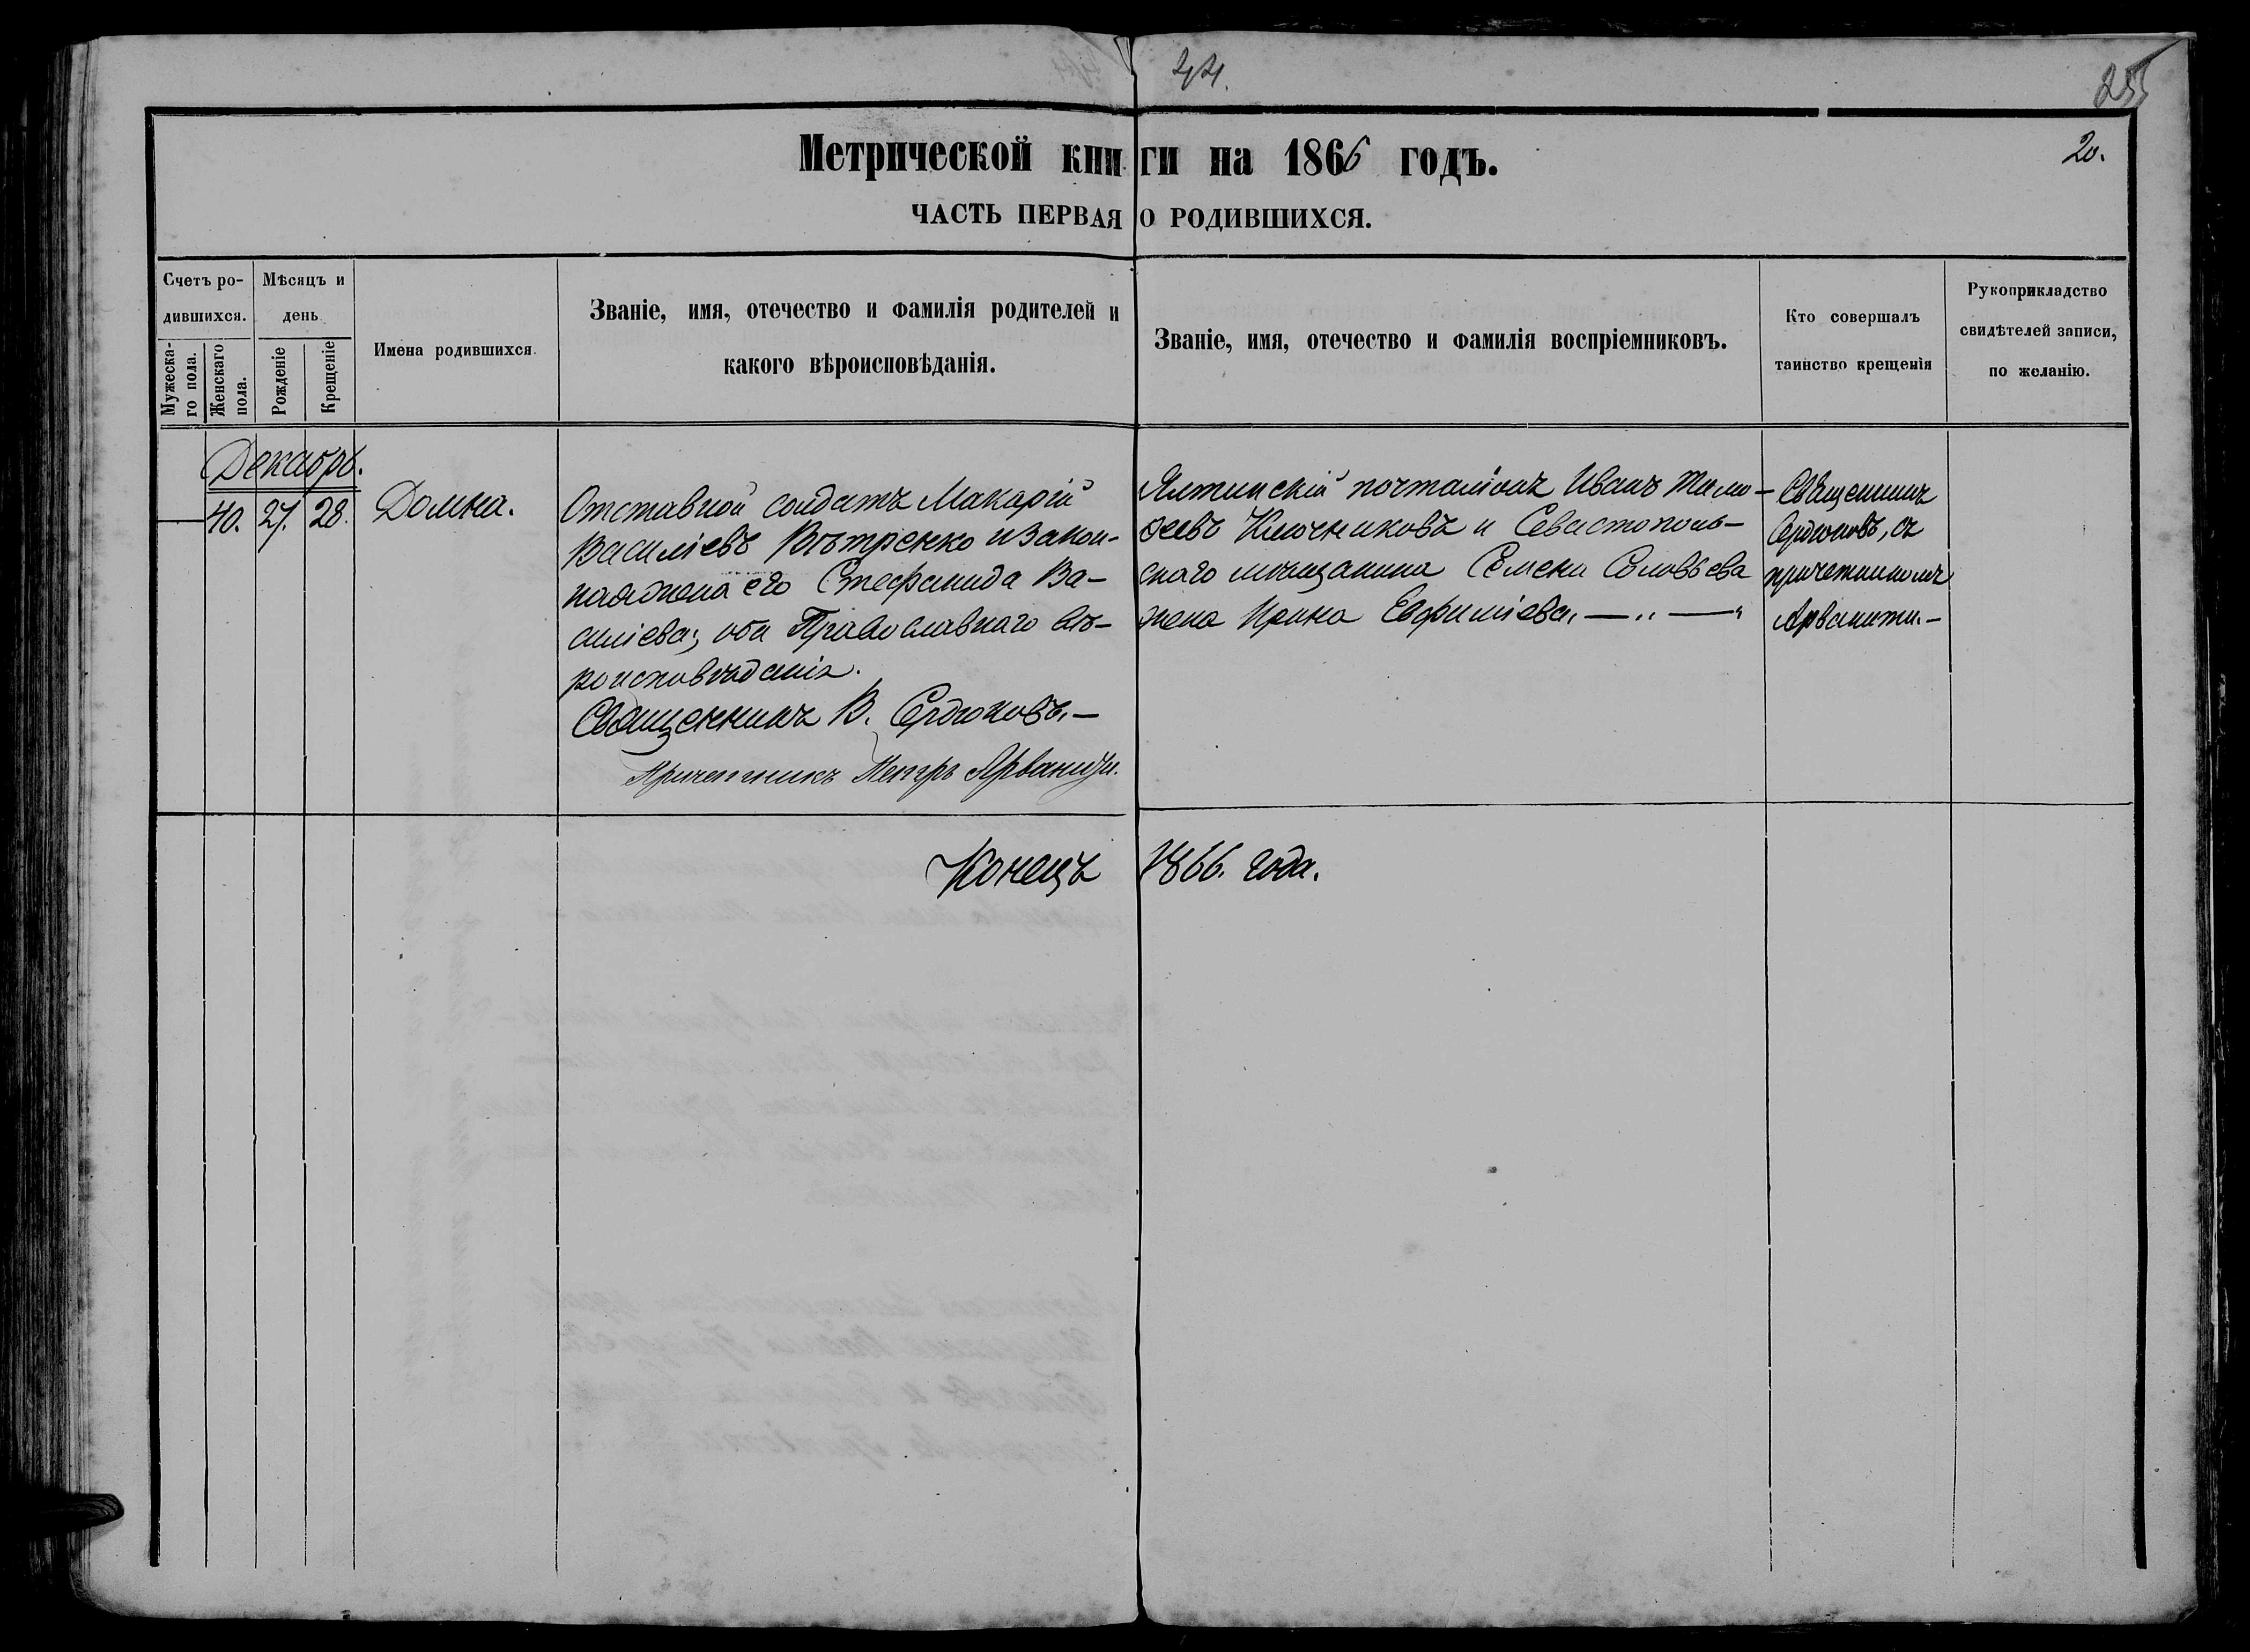 44.
255
20.
Метрической книги на 1866 годъ.
ЧАСТЬ ПЕРВАЯ О РОДИВШИХСЯ.
Счетъ ро-
дившихся.
Мужеска-
го пола.
Женскаго
пола.
Мѣсяцъ и
день
Рожденіе
Крещеніе
Имена родившихся.
Званіе, имя, отечество и фамилія родителей и
какого вѣроисповѣданія.
Званіе, имя, отечество и фамилія воспріемниковъ.
Кто совершалъ
таинство крещенія
Рукоприкладство
свидѣтелей записи,
по желанію.
Декабрь.
40. 27. 28.
Домна.
Отставной солдатъ Макарій
Василіевъ Вѣтренко и закон-
ная жена его Стефанида Ва-
силіева; оба Православнаго вѣ-
роисповѣданія.
Священникъ В. Сердюковъ.—
Причетникъ Петръ Арваниди.
Ялтинскій почталіонъ Иванъ Тимо-
ѳеевъ Ключниковъ и Севастополь-
скаго мѣщанина Семена Соловьева
жена Ирина Евфиміева. — „ — „
Священникъ
Сердюковъ, съ
причетникомъ
Арванити.—
Конецъ 1866. года.